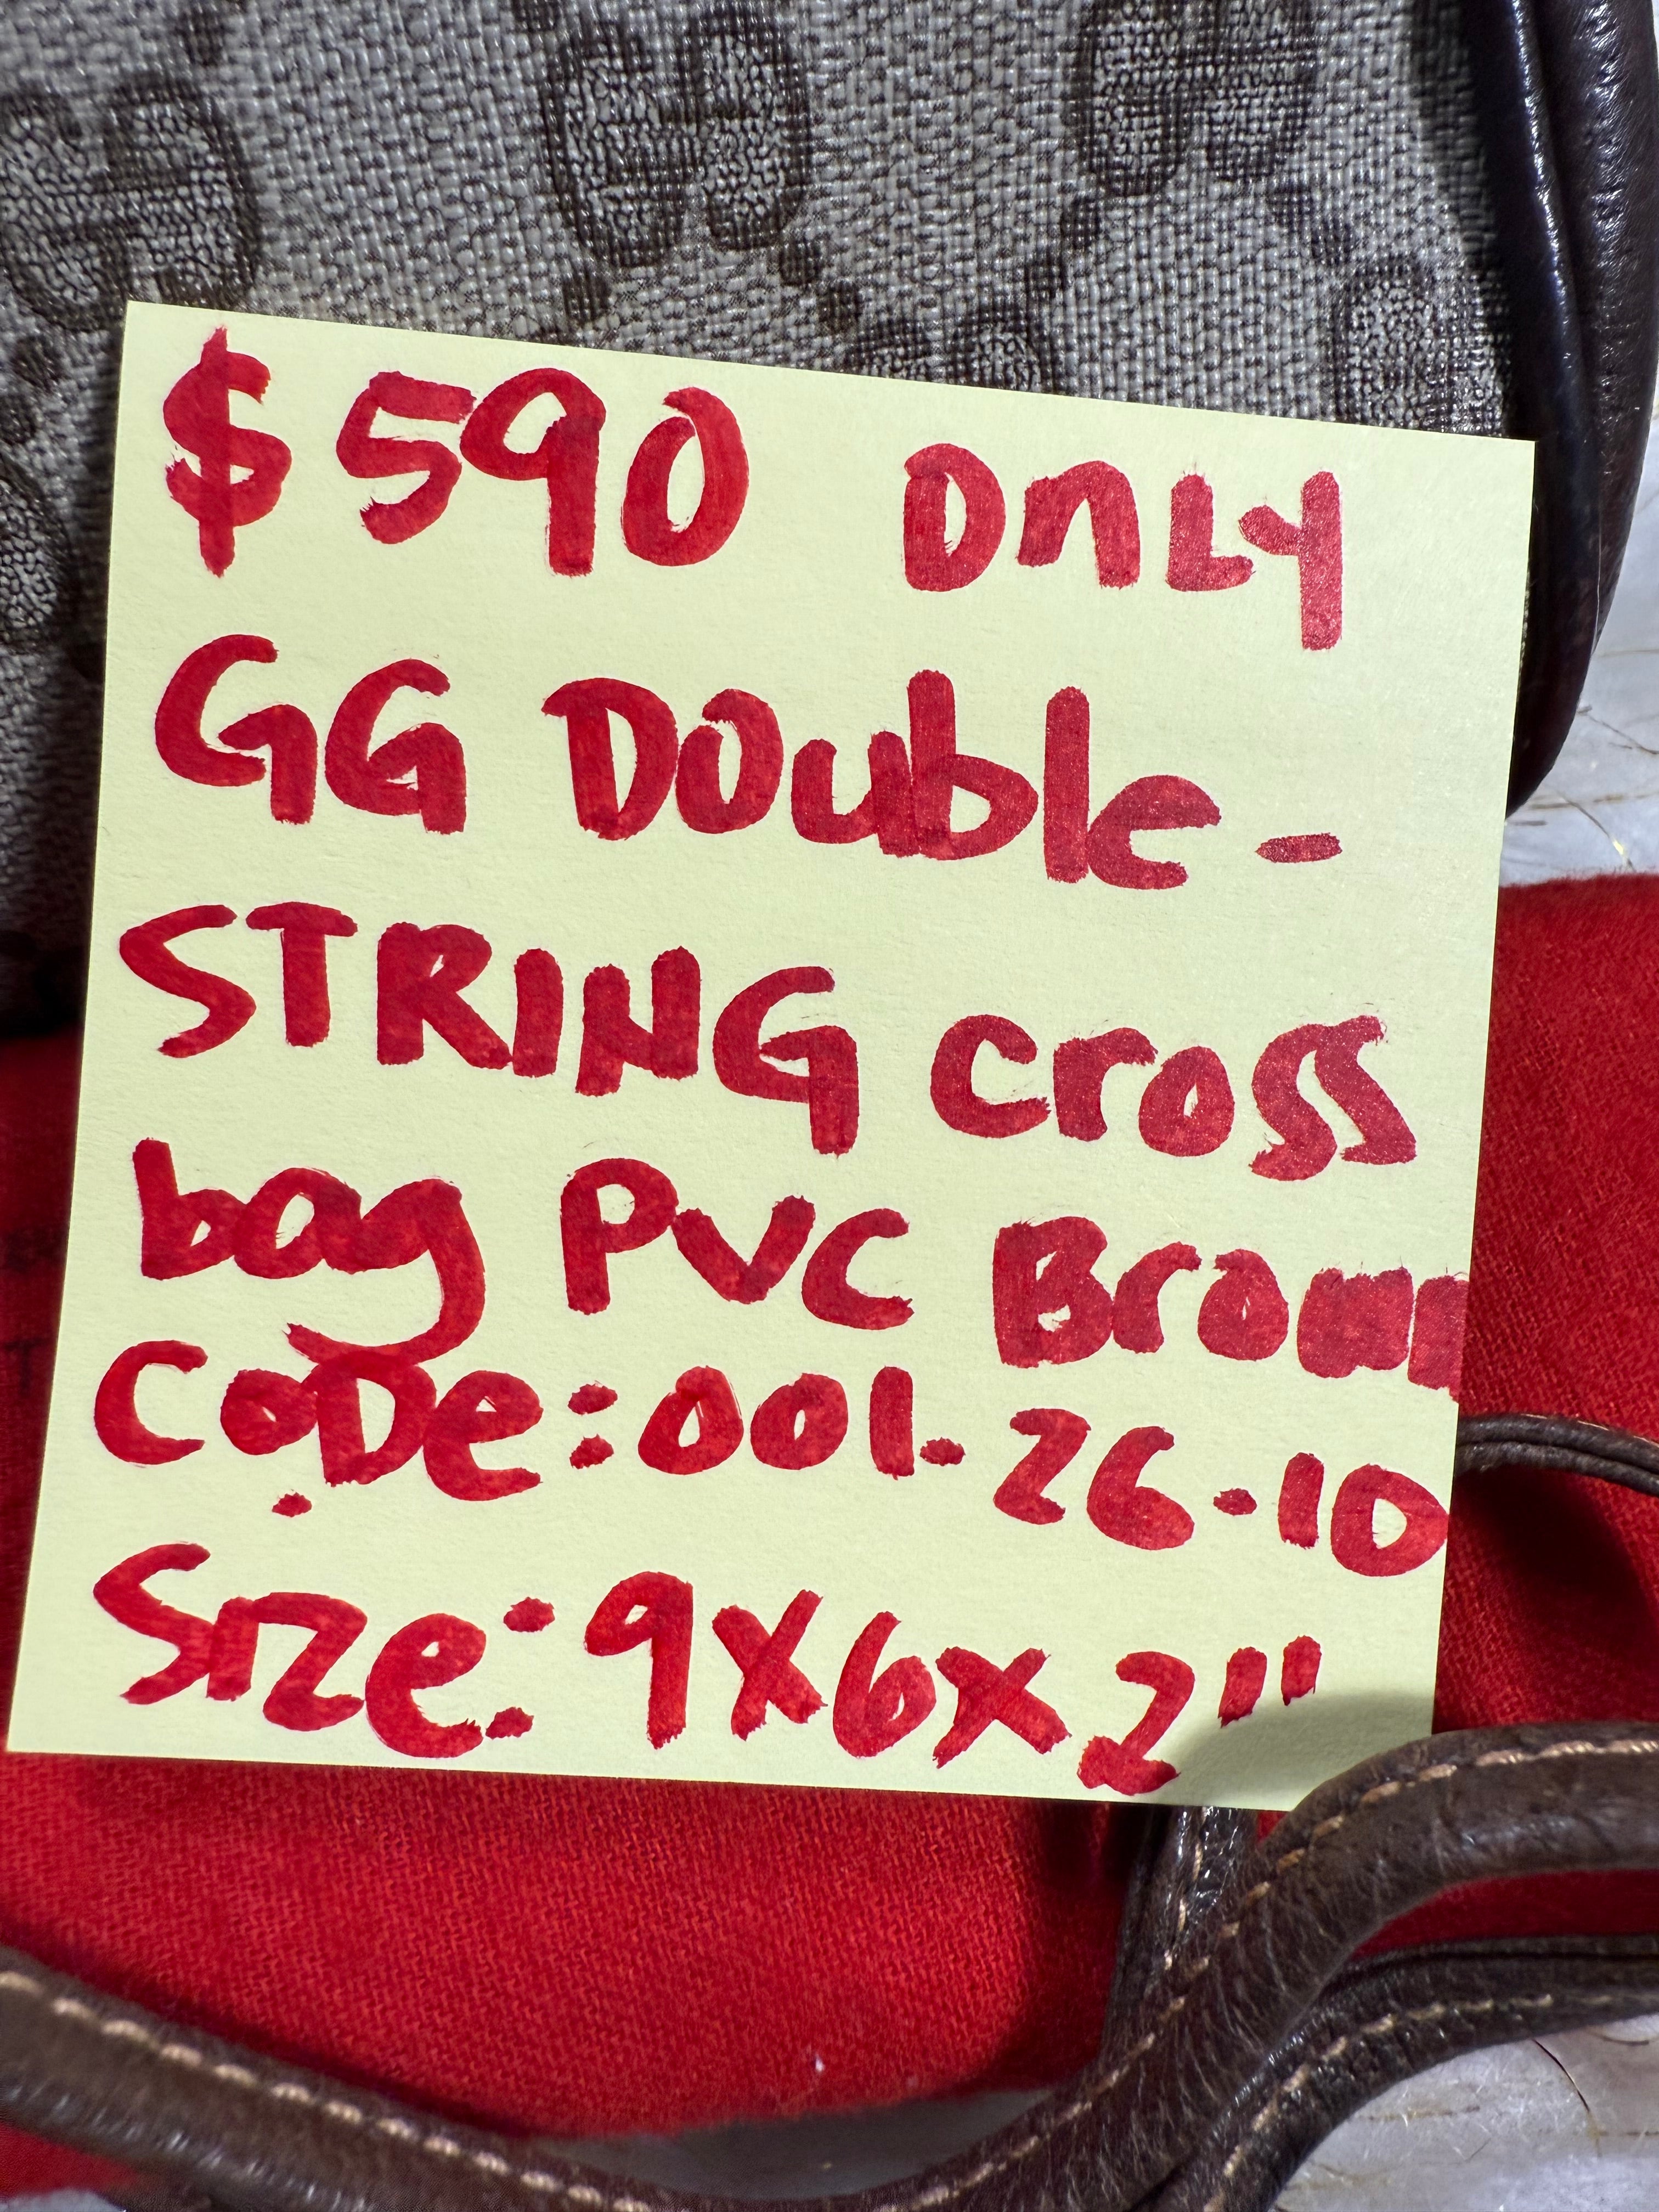 $590 ONLY
GG Double-
STRING cross
bag PVC Brown
CoDe: 001-26-10
Size: 9x6x2"